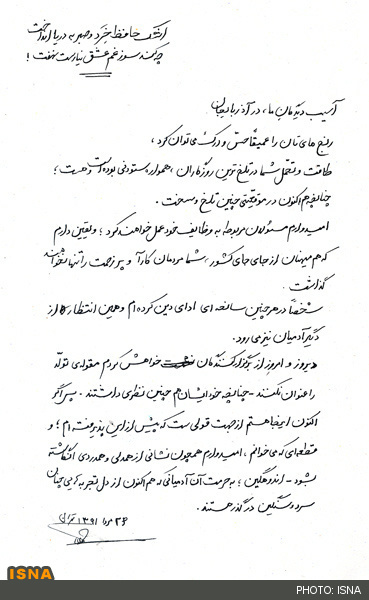 از آنکه حافظ خرد و صبر به دریا انداخت
چه کند سوز غم عشق نیارست نهفت!
آسیب دیدگان ما، در آذربایجان
رنج های تان را عمیقاً حس و درک می توان کرد،
طاقت و تحمل شما در تلخ ترین روزگاران، همواره ستودنی بوده است و هست؛
چنانچه هم اکنون در موقعیتی چنین تلخ و سخت.
امیدوارم مسئولان مربوط به وظایف خود عمل خواهند کرد؛ و یقین دارم
که هم میهنان از جای جای کشور، شما مردمان کارآ و پر زحمت را تنها نخواهند
گذاشت.
شخصاً در هر چنین سانحه ای ادای دین کرده ام و همین انتظار از
دیگر آدمیان نیز می رود.
دیروز و امروز از برگزارکنندگان خواهش کردم مقوله ی تولد
را عنوان نکنند - چنانچه خود ایشان هم چنین نظری داشتند. پس اگر
اکنون اینجا هستم از جهت قولی ست که پیش از این پذیرفته ام؛ و
قطعه ای که می خوانم، امیدوارم همچون نشانی از همدلی و همدردی انگاشته
شود - اندوهگین؛ به حرمت آن آدمیانی که هم اکنون از دل تجربه آمی چنان
سرد و سنگین در گذر هستند.
۲۶ مرداد ۱۳۹۱ تهران
ISNA
PHOTO: ISNA